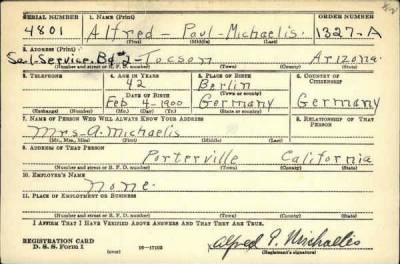 SERIAL NUMBER 1. NAME (Print) ORDER NUMBER
4801 Alfred - Paul - Michaelis. 1327-A
(First) (Middle) (Last)
2. ADDRESS (Print)
Sel-Service. Bd #2 - Tocson Arizona.
(Number and street or R. F. D. number) (Town) (County) (State)
3. TELEPHONE 4. AGE IN YEARS 5. PLACE OF BIRTH 6. COUNTRY OF CITIZENSHIP
42 Berlin
DATE OF BIRTH (Town or county)
Feb 4-1900 Germany Germany
(Exchange) (Number) (Mo.) (Day) (Yr.) (State or country)
7. NAME OF PERSON WHO WILL ALWAYS KNOW YOUR ADDRESS 8. RELATIONSHIP OF THAT PERSON
Mrs-A. Michaelis
(Mr., Mrs., Miss) (First) (Middle) (Last)
9. ADDRESS OF THAT PERSON
Porterville California
(Number and street or R. F. D. number) (Town) (County) (State)
10. EMPLOYER'S NAME
None.
11. PLACE OF EMPLOYMENT OR BUSINESS
(Number and street or R. F. D. number) (Town) (County) (State)
I AFFIRM THAT I HAVE VERIFIED ABOVE ANSWERS AND THAT THEY ARE TRUE.
REGISTRATION CARD
D. S. S. Form 1 Alfred P. Michaelis
(Registrant's signature)